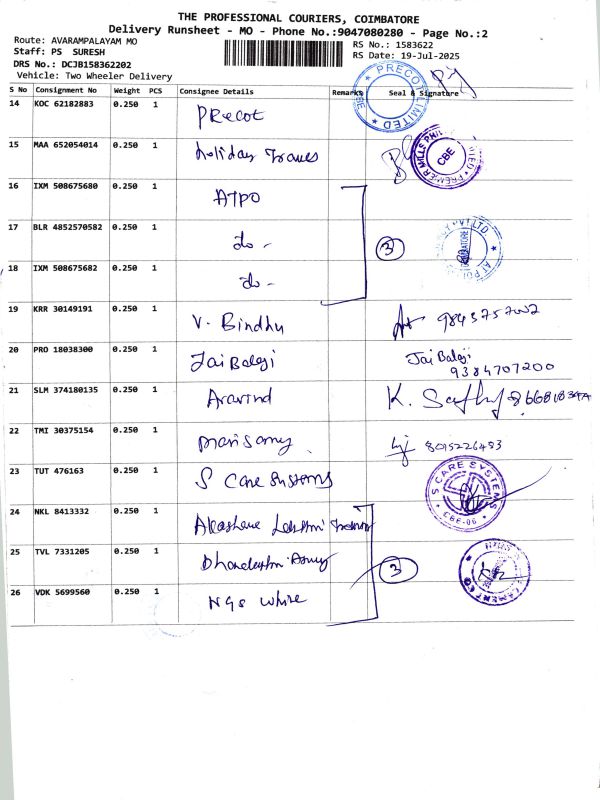 THE PROFESSIONAL COURIERS, COIMBATORE
Delivery Runsheet - MO - Phone No.:9047080280 - Page No.:2
Route: AVARAMPALAYAM MO
Staff: PS SURESH
DRS No.: DCJB158362202
Vehicle: Two Wheeler Delivery
RS No.: 1583622
RS Date: 19-Jul-2025
S No Consignment No Weight PCS Consignee Details Remarks Seal & Signature
PRECOT LIMITED
14 KOC 62182883 0.250 1 Precot
15 MAA 652054014 0.250 1 Holiday
PREMIER MILLS CBE
16 IXM 508675680 0.250 1 ATPO
17 BLR 4852570582 0.250 1 do - 3
18 IXM 508675682 0.250 1 do -
19 KRR 30149191 0.250 1 V. Bindhu
20 PRO 18038300 0.250 1 Jai Balaji Jai Balaji
9384707200
21 SLM 374180135 0.250 1 Aravind K.
22 TMI 30375154 0.250 1 Marisamy 8015226483
23 TUT 476163 0.250 1 S Care Systems
S CARE SYSTEMS CBE-06
24 NKL 8413332 0.250 1 Lakshmi
25 TVL 7331205 0.250 1 3
26 VDK 5699560 0.250 1 NGS White